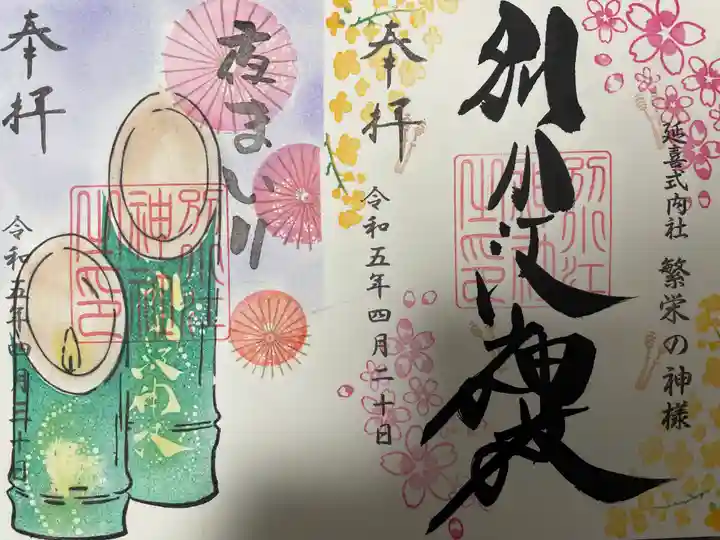 延喜式内社 繁栄の神様
別小江神社
別小江神社之印
奉拝
令和五年四月二十日
夜まいり
別小江神社
別小江神社之印
奉拝
令和五年四月二十日